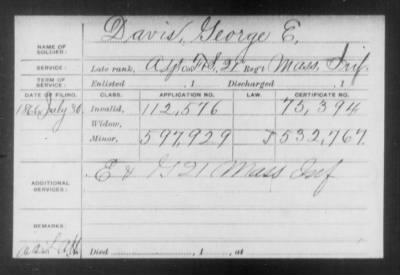 Davis, George E.
NAME OF SOLDIER:
SERVICE: Late rank, F&S, 21 Reg't Mass. Inf.
TERM OF SERVICE: Enlisted , 1 Discharged , 1
DATE OF FILING. CLASS. APPLICATION NO. LAW. CERTIFICATE NO.
1866 July 30. Invalid, 112,576 75,394
Widow,
Minor, 597,929 532,767.
E & G 21 Mass Inf
ADDITIONAL SERVICES:
REMARKS:
Died , 1 , at